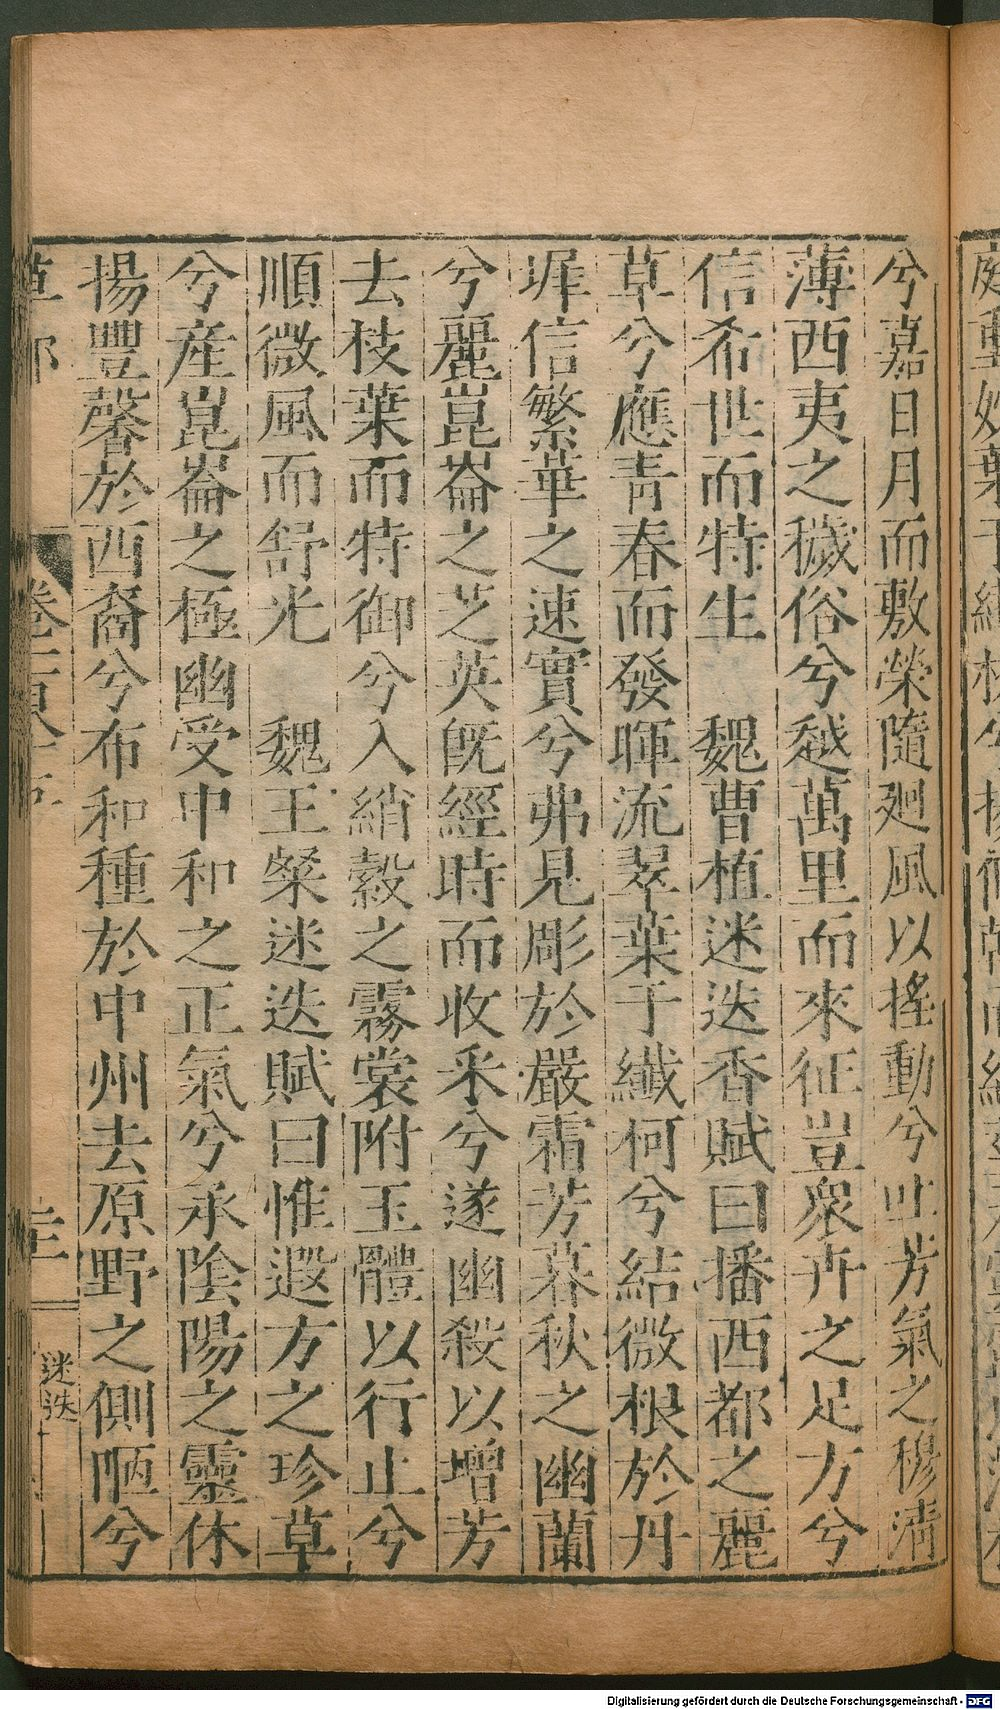 兮嘉日月而敷榮隨廻風以揺動兮吐芳氣之穆淸
薄西夷之穢俗兮越萬里而來征豈衆卉之足方兮
信希世而特生　魏曹植迷迭香賦曰播西都之麗
草兮應靑春而發暉流翠葉于纖柯兮結微根於丹
墀信繁華之速實兮弗見彫於嚴霜芳暮秋之幽蘭
兮麗崑崙之芝英旣經時而收采兮遂幽殺以增芳
去枝葉而特御兮入綃縠之霧裳附玉體以行止兮
順微風而舒光　魏王粲迷迭賦曰惟遐方之珍草
兮産崑崙之極幽受中和之正氣兮承陰陽之靈休
揚豐馨於西裔兮布和種於中州去原野之側陋兮
草部
迷迭
Digitalisierung gefördert durch die Deutsche Forschungsgemeinschaft - DFG